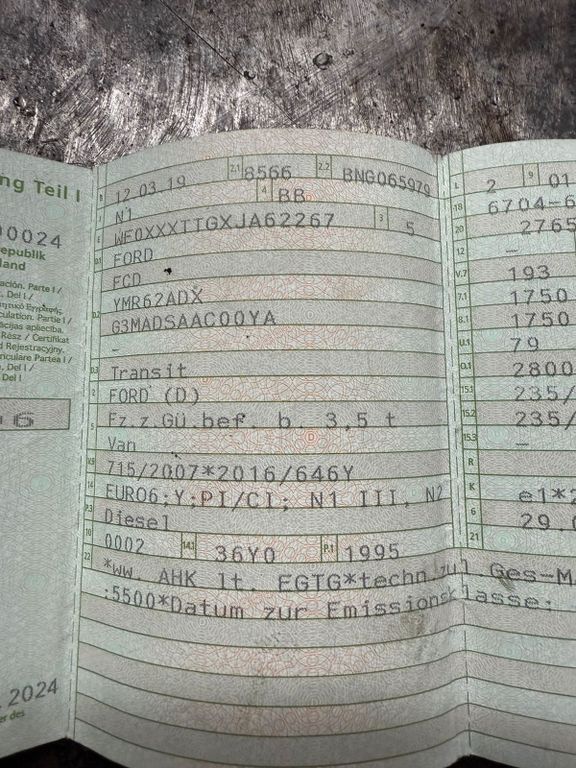 ng Teil I
00024
epublik
land
ación. Parte I /
. Del I /
culation. Partie I /
ācijas apliecība.
Rész / Certifikat
d Rejestracyjny.
nculare Partea I /
. Del I /
Del I
06
. 2024
er des
B 12.03.19 2.1 8566 2.2 BNG065979
J N1 4 BB
E WF0XXXTTGXJA62267 3 5
D.1 FORD
FCD
D.2 YMR62ADX
G3MADSAAC00YA
–
D.3 Transit
2 FORD (D)
5 Fz.z.Gü.bef. b. 3,5 t
Van
V.9 715/2007*2016/646Y
14 EURO6;Y;PI/CI; N1 III, N2
P.3 Diesel
10 0002 14.1 36Y0 P.1 1995
22 *ww. AHK lt. EGTG*techn.zul.Ges-M
:5500*Datum zur Emissionsklasse:
L 2 9 01
18 6704-6
20 2765
12 –
V.7 193
7.1 1750
8.1 1750
U.1 79
O.1 2800
15.1 235/
15.2 235/
15.3 –
R
K e1*2
6 29.0
21